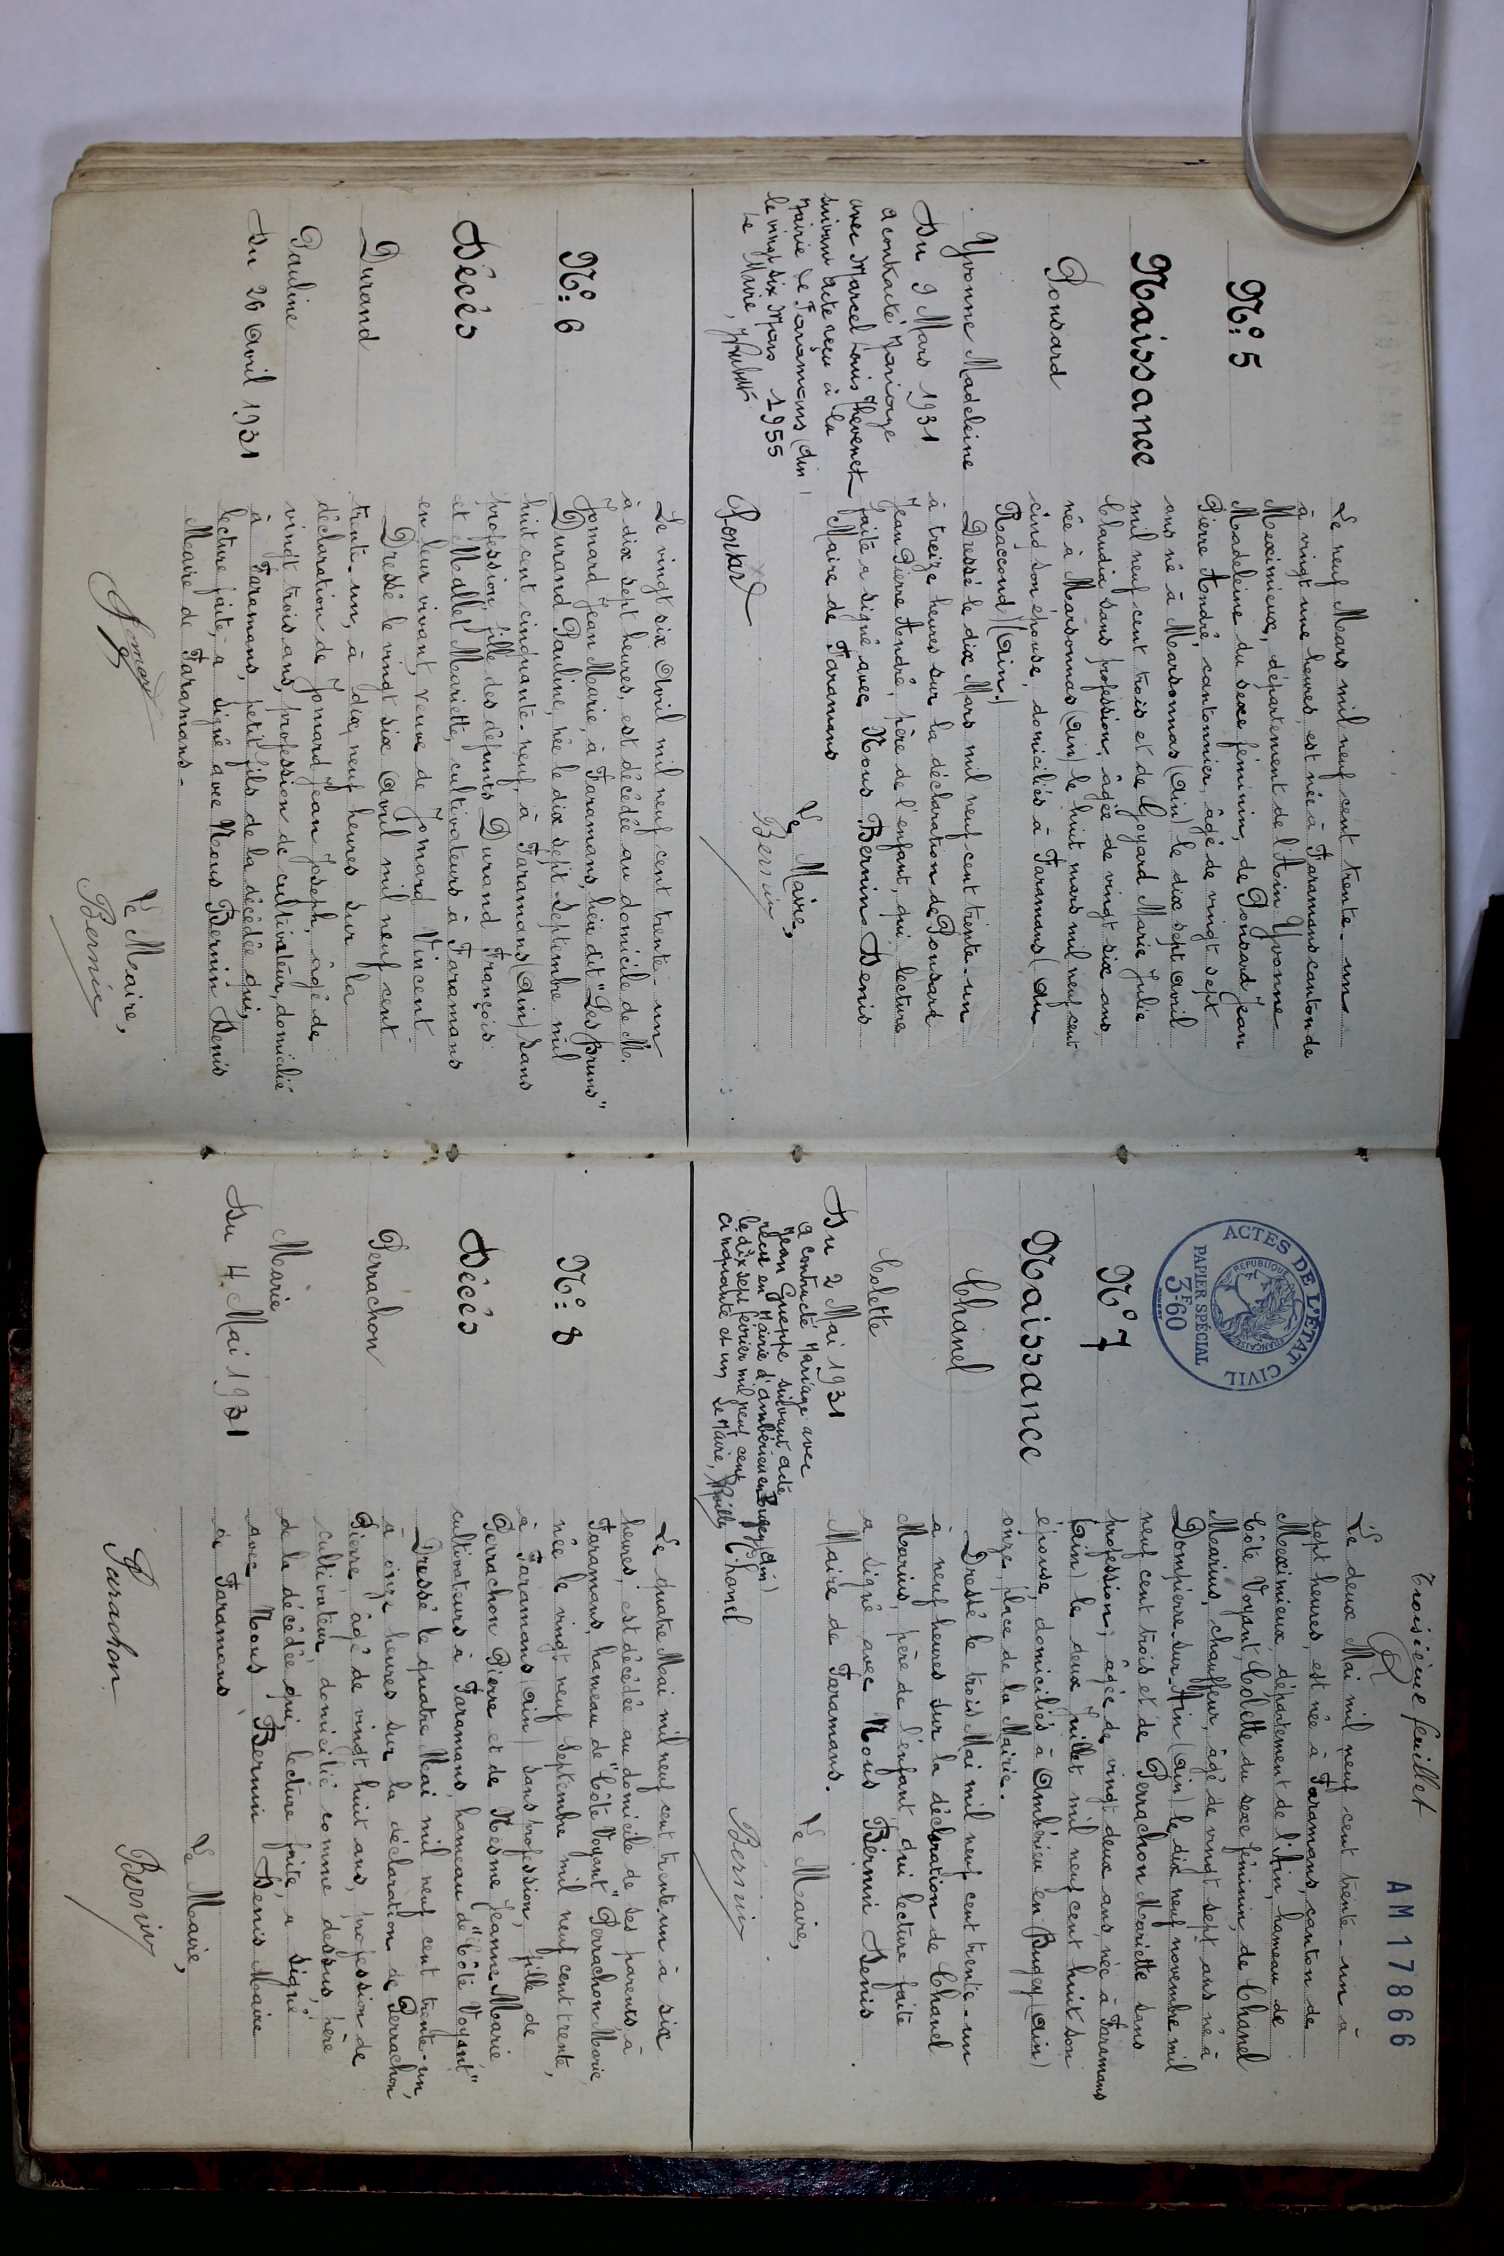 N° 5
Naissance
Ponsard
Yvonne Madeleine
Du 9 Mars 1931
a contracté mariage
avec Marcel Louis Thevenet
suivant acte reçu à la
Mairie de Faramans (Ain)
le vingt six Mars 1955
Le Maire,
Le neuf Mars mil neuf cent trente-un
à vingt une heures, est née à Faramans canton de
Meximieux, département de l'Ain Yvonne
Madeleine du sexe féminin, de Ponsard Jean
Pierre André, cantonnier, âgé de vingt sept
ans né à Marsonnas (Ain) le dix sept Avril
mil neuf cent trois et de Goyard Marie Julie
Claudia sans profession, âgée de vingt six ans
née à Marsonnas (Ain) le huit mars mil neuf cent
cinq son épouse, domiciliés à Faramans (Au
Raccond) (Ain.)
Dressé le dix Mars mil neuf cent trente-un
à treize heures sur la déclaration de Ponsard
Jean Pierre André, père de l'enfant, qui, lecture
faite a signé avec Nous Bernin Denis
Maire de Faramans
Le Maire,
Ponsard
Bernin
N° 6
Décès
Durand
Pauline
Du 26 Avril 1931
Le vingt six Avril mil neuf cent trente-un
à dix sept heures, est décédée au domicile de M.
Jomard Jean Marie, à Faramans, lieu dit "Les Bruns"
Durand Pauline, née le dix sept Septembre mil
huit cent cinquante-neuf, à Faramans (Ain) sans
profession, fille des défunts Durand François
et Mallet Mariette, cultivateurs à Faramans
en leur vivant, veuve de Jomard Vincent
Dressé le vingt six Avril mil neuf cent
trente-un, à dix neuf heures sur la
déclaration de Jomard Jean Joseph, âgé de
vingt trois ans, profession de cultivateur, domicilié
à Faramans, petit fils de la décédée qui,
lecture faite, a signé avec Nous Bernin Denis
Maire de Faramans-
Le Maire,
Jomard
Bernin
Troisième feuillet
AM 17866
ACTES DE L'ÉTAT CIVIL
RÉPUBLIQUE FRANÇAISE
PAPIER SPÉCIAL
3F60
N° 7
Naissance
Chanel
Colette
Du 2 Mai 1931
a contracté Mariage avec
Jean Greppe suivant acte
reçu en Mairie d'Ambérieu en Bugey (Ain)
le dix sept février mil neuf cent
cinquante et un Le Maire,
Le deux Mai mil neuf cent trente-un à
sept heures, est née à Faramans, canton de
Meximieux, département de l'Ain, hameau de
Côte Voyant, Colette du sexe féminin, de Chanel
Marius, chauffeur, âgé de vingt sept ans né à
Dompierre-sur-Ain (Ain) le dix neuf novembre mil
neuf cent trois et de Perrachon Mariette sans
profession, âgée de vingt deux ans, née à Faramans
(Ain) le deux Juillet mil neuf cent huit son
épouse, domiciliés à Ambérieu en Bugey (Ain)
onze, place de la Mairie.
Dressé le trois Mai mil neuf cent trente-un
à neuf heures sur la déclaration de Chanel
Marius, père de l'enfant, qui lecture faite
a signé avec Nous Bernin Denis
Maire de Faramans.
Le Maire,
Chanel
Bernin
N° 8
Décès
Perrachon
Marie
Du 4 Mai 1931
Le quatre Mai mil neuf cent trente-un à six
heures, est décédée au domicile de ses parents à
Faramans, hameau de "Côte Voyant" Perrachon Marie
née le vingt neuf Septembre mil neuf cent trente,
à Faramans (Ain) sans profession, fille de
Perrachon Pierre et de Nesme Jeanne Marie,
cultivateurs à Faramans, hameau de "Côte Voyant"
Dressé le quatre Mai mil neuf cent trente-un,
à onze heures sur la déclaration de Perrachon
Pierre, âgé de vingt huit ans, profession de
cultivateur, domicilié comme dessus, père
de la décédée qui, lecture faite, a signé
avec Nous Bernin Denis Maire
de Faramans
Le Maire,
Parachon
Bernin